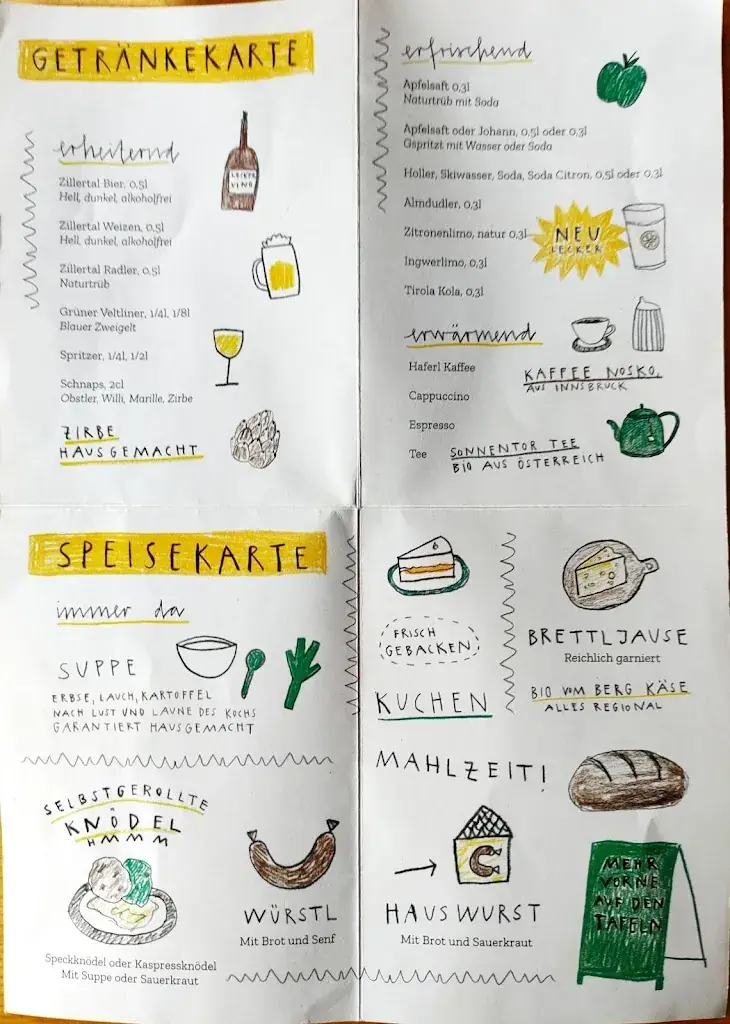 GETRÄNKEKARTE
erheiternd
Zillertal Bier, 0,5l
Hell, dunkel, alkoholfrei
Zillertal Weizen, 0,5l
Hell, dunkel, alkoholfrei
Zillertal Radler, 0,5l
Naturtrüb
Grüner Veltliner, 1/4l, 1/8l
Blauer Zweigelt
Spritzer, 1/4l, 1/2l
Schnaps, 2cl
Obstler, Willi, Marille, Zirbe
ZIRBE
HAUSGEMACHT
erfrischend
Apfelsaft 0,3l
Naturtrüb mit Soda
Apfelsaft oder Johann, 0,5l oder 0,3l
Gspritzt mit Wasser oder Soda
Holler, Skiwasser, Soda, Soda Citron, 0,5l oder 0,3l
Almdudler, 0,3l
Zitronenlimo, natur 0,3l
NEU
LECKER
Ingwerlimo, 0,3l
Tirola Kola, 0,3l
erwärmend
Haferl Kaffee
KAFFEE NOSKO,
AUS INNSBRUCK
Cappuccino
Espresso
Tee
SONNENTOR TEE
BIO AUS ÖSTERREICH
SPEISEKARTE
immer da
SUPPE
ERBSE, LAUCH, KARTOFFEL
NACH LUST UND LAUNE DES KOCHS
GARANTIERT HAUSGEMACHT
SELBSTGEROLLTE
KNÖDEL
HMMM
Speckknödel oder Kaspressknödel
Mit Suppe oder Sauerkraut
WÜRSTL
Mit Brot und Senf
FRISCH
GEBACKEN
KUCHEN
BRETTLJAUSE
Reichlich garniert
BIO VOM BERG KÄSE
ALLES REGIONAL
MAHLZEIT!
HAUSWURST
Mit Brot und Sauerkraut
MEHR
VORNE
AUF DEN
TAFELN